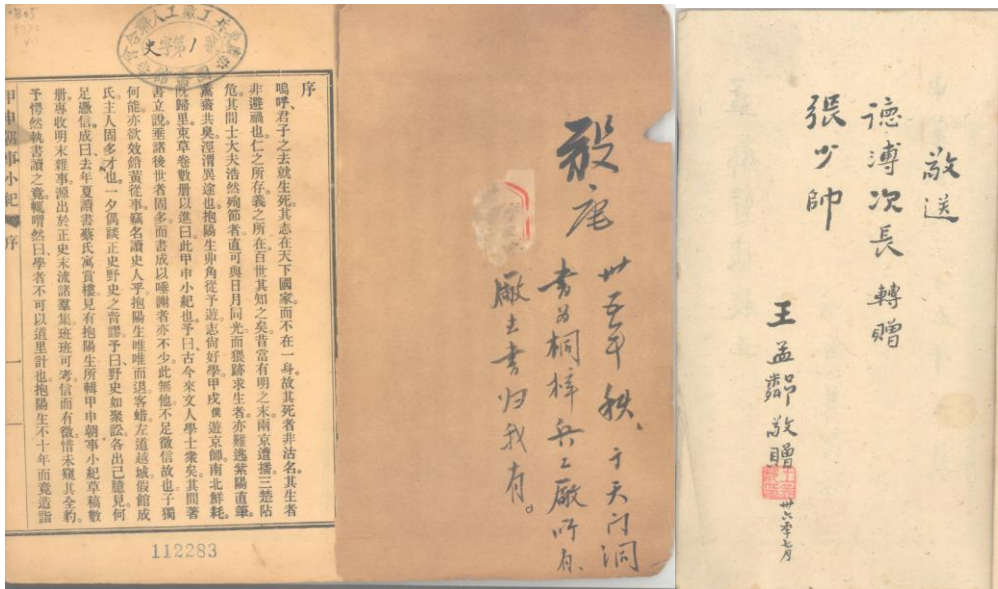 序
嗚呼、君子之去就生死、其志在天下國家、而不在一身、故其死者非沽名、其生者
非避禍也。仁之所存、義之所在、百世其知之矣。昔當有明之末、兩京遭播、三楚阽
危、其間士大夫浩然殉節者、直可與日月同光、而猥跡求生者、亦難逃紫陽直筆。
薰蕕共臭、涇渭異途也。抱陽生丱角從予遊、志尚好學、甲戌僕遊京師、南北鮮耗。
旣歸里、束草卷數册以進曰、此甲申小紀也。予曰、古今來文人學士衆矣、其間著
書立說、垂諸後世者固多、而書成以唾謝者亦不少、此無他、不足徵信故也。子獨
何能、亦欲效鉛黃從事、竊名讀史人乎。抱陽生唯唯而退。客蜡左道越城、假館成
氏、主人固多才也。一夕偶談正史野史之背謬、予曰、野史如聚訟、各出己臆見、何
足憑信。成曰、去年夏讀書蔡氏寓賞樓、見有抱陽生所輯甲申朝事小紀草稿數
册、專收明末雜事、源出於正史、末流諸羣集、班班可考、信而有徵、惜未窺其全豹。
予愕然、執書讀之、竟輒喟然曰、學者不可以道里計也。抱陽生不十年而竟造詣
甲申朝事小紀 序 一
史 字第1號
112283
毅庵
卅五年秋，于天门洞
书为桐梓兵工厰所有，
厰去书归我有。
敬送
德溥次長 轉贈
張少帥
王孟鄰敬贈
卅六年七月